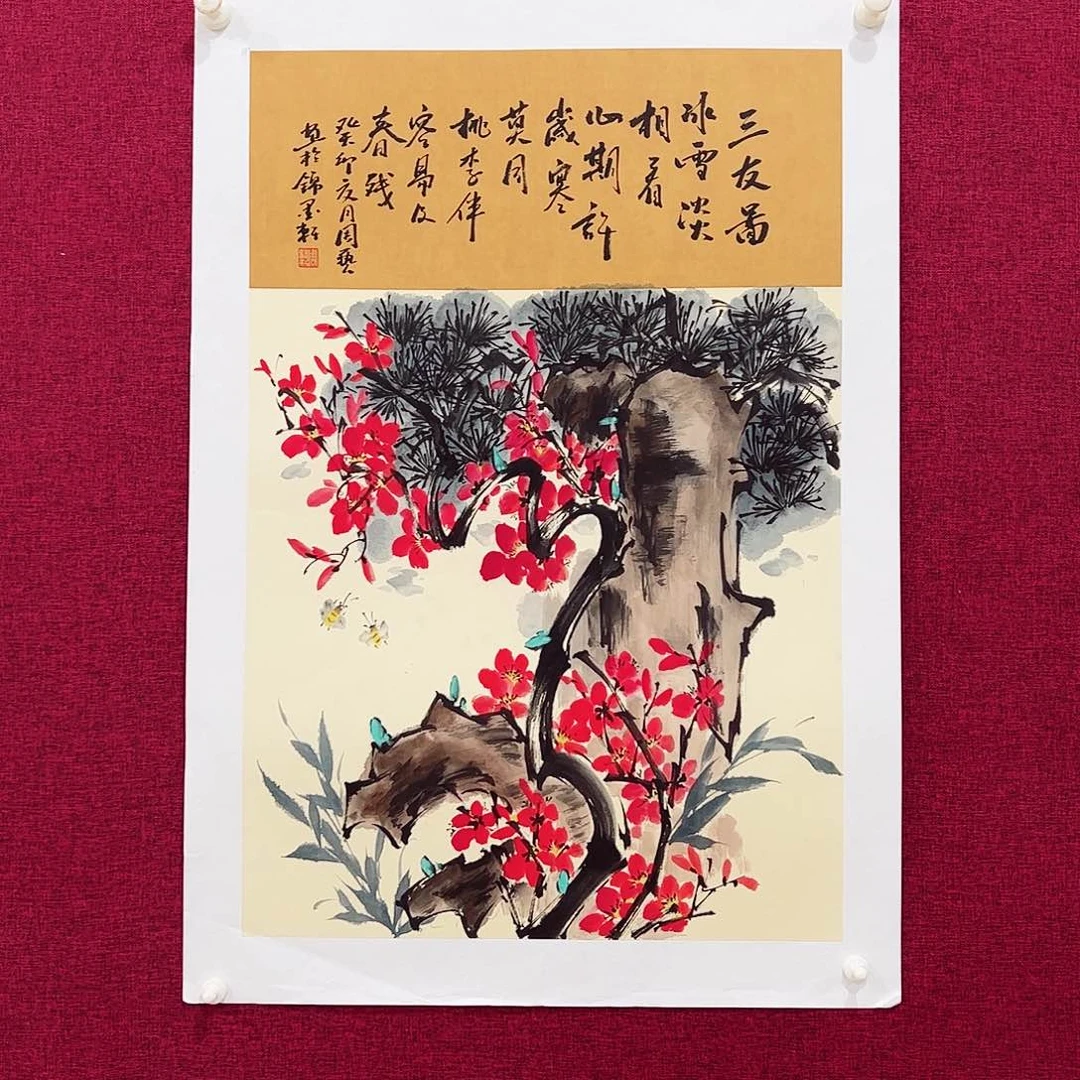 三友啚
冰雪淡
相看
心期許
歲寒
莫同
桃李伴
容易及
春残
癸卯夏月周藝
畫於錦墨軒